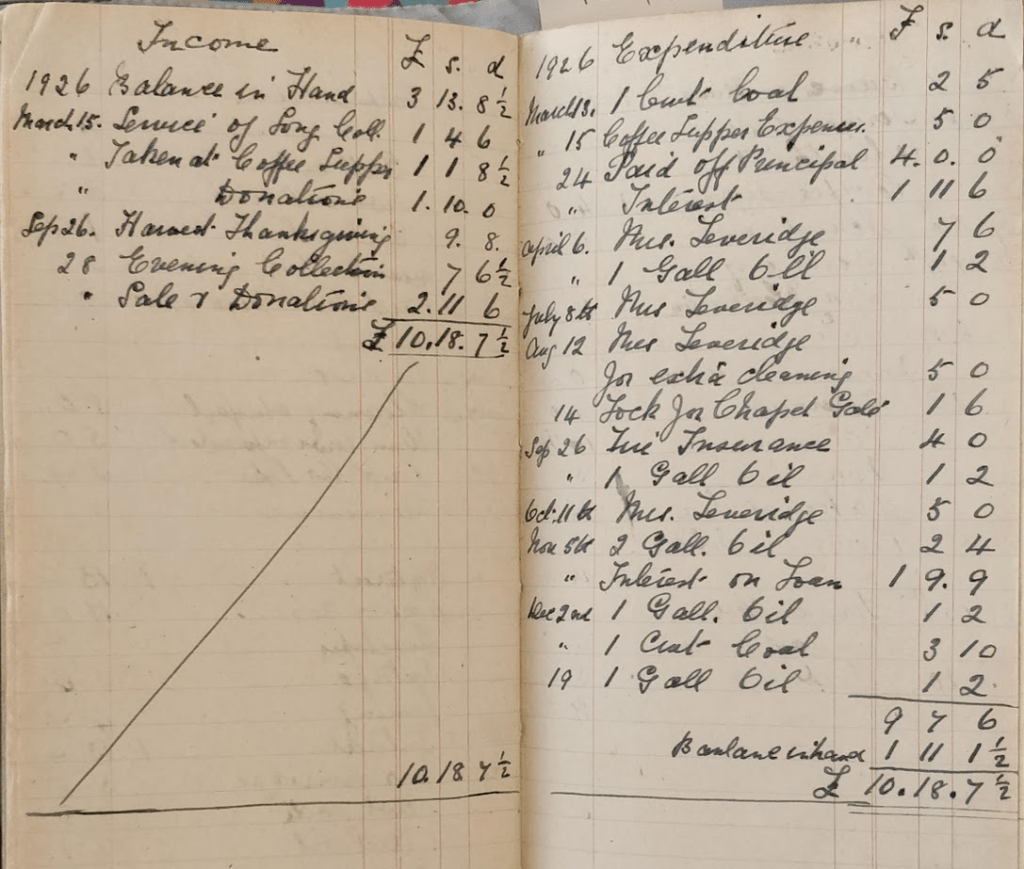 Income £ s. d
1926 Balance in Hand 3 13. 8 ½
March 15. Service of Song Coll. 1 4 6
" Taken at Coffee Supper 1 1 8 ½
" Donations 1. 10. 0
Sep 26. Harvest Thanksgiving 9. 8.
28 Evening Collection 7 6 ½
" Sale & Donations 2. 11 6
£ 10. 18. 7 ½
10. 18 7 ½
1926 Expenditure " £ s. d
March 13. 1 Cwt Coal 2 5
" 15 Coffee Supper Expenses. 5 0
24 Paid off Principal 4. 0. 0
" Interest 1 11 6
April 6. Mrs. Leveridge 7 6
" 1 Gall Oil 1 2
July 8th Mrs Leveridge 5 0
Aug 12 Mrs Leveridge
for extra cleaning 5 0
14 Lock for Chapel Gate 1 6
Sep 26 Fire Insurance 4 0
" 1 Gall Oil 1 2
Oct. 11th Mrs. Leveridge 5 0
Nov 5th 2 Gall. Oil 2 4
" Interest on Loan 1 9. 9
Dec 2nd 1 Gall. Oil 1 2
" 1 Cwt Coal 3 10
19 1 Gall Oil 1 2.
9 7 6
Banlane in hand 1 11 1 ½
£ 10. 18. 7 ½